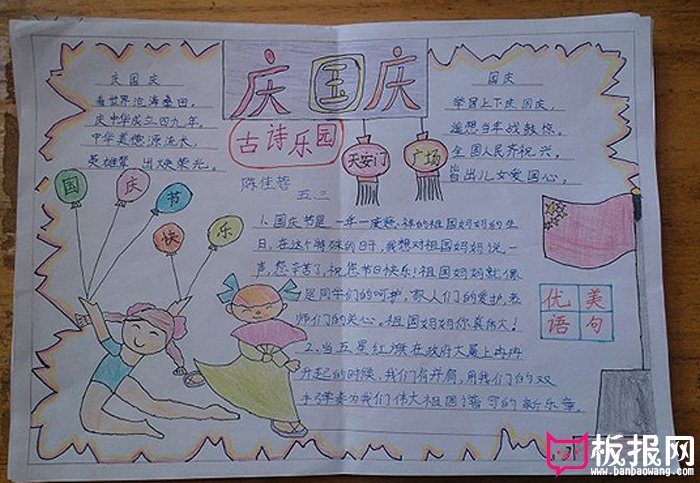 庆国庆
庆国庆
看世界沧海桑田，
庆中华成立四九年。
中华美德源流长，
英雄辈出焕荣光。
国庆
举国上下庆国庆，
遥想当年战鼓惊。
全国人民齐祝兴，
皆出儿女爱国心。
古诗乐园
天安门
广场
陈佳蓉
五.三
国庆节
快乐
1.国庆节是一年一度
祖国妈妈的生
日，在这个特殊的日子，我想对祖国妈妈说一
声，您辛苦了，祝您节日快乐！祖国妈妈就像
是同学们的呵护，家人们的爱护，老
师们的关心。祖国妈妈你真伟大！
2.当五星红旗在政府大厦上冉冉
升起的时候，我们有开启，用我们的双
手弹奏为我们伟大祖国谱写的新乐章
优美
语句
板报网
www.banbaowang.com